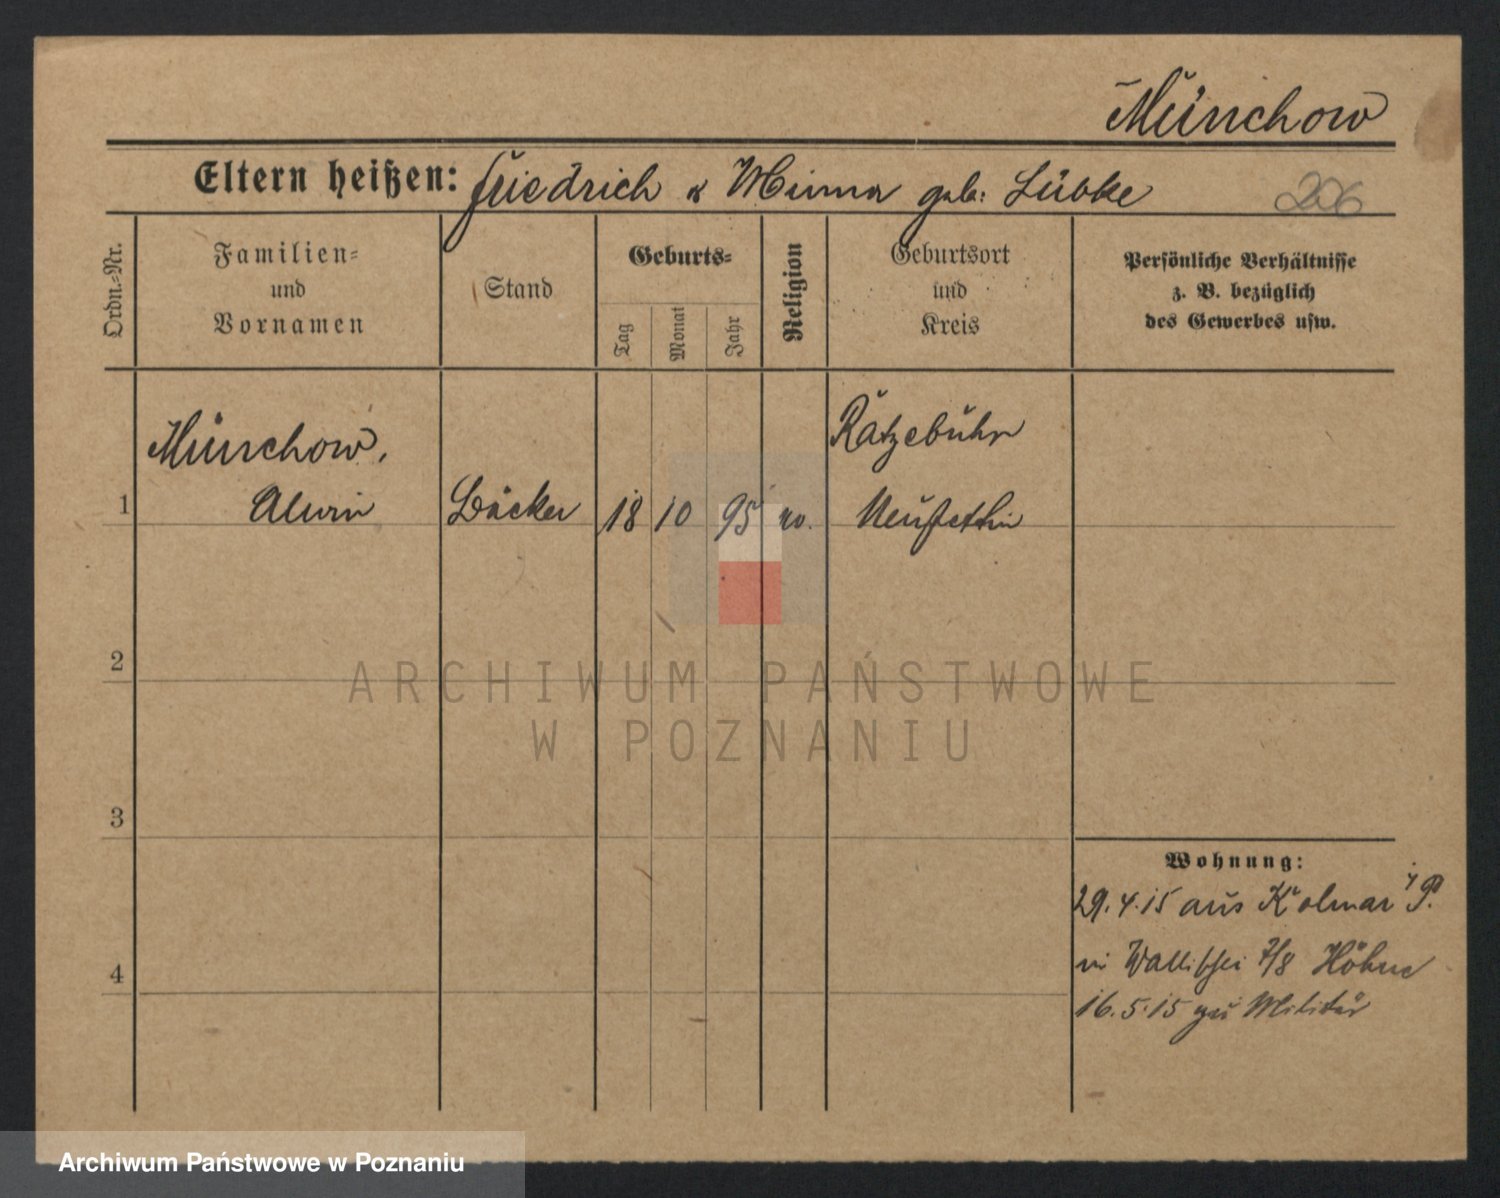 Münchow
Eltern heißen: Friedrich & Minna geb: Lübke
206
Ordn.-Nr.
Familien-
und
Vornamen
Stand
Geburts-
Tag
Monat
Jahr
Religion
Geburtsort
und
Kreis
Persönliche Verhältnisse
z. B. bezüglich
des Gewerbes usw.
Münchow,
Ratzebuhr
1 Alwin Bäcker 18 10 95 ev. Neustettin
2
ARCHIWUM PAŃSTWOWE
W POZNANIU
3
Wohnung:
29.4.15 aus Kolmar i/P.
in Wallischei 7/8 Höhne
4
16.5.15 zu Militär
Archiwum Państwowe w Poznaniu